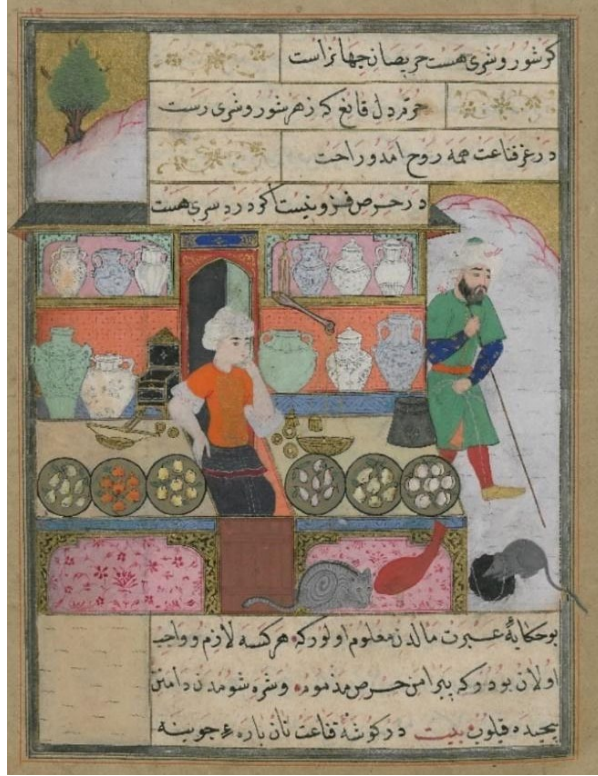 کر شور و شری هست حریصان جهانراست
خرم دل قانع که زهر شور و شری رست
در عز قناعت همه روح امد و راحت
در حرص فزونیست اکر درد سری هست
بو حکایهٔ عبرت مالدن معلوم اولورکه هر کسه لازم و واجب
اولان بودرکه پیرامن حرص مذمومه و شره شومدن دامنن
پیچیده قیلوب بیت در کوشهٔ قناعت نان باره ء جوینه